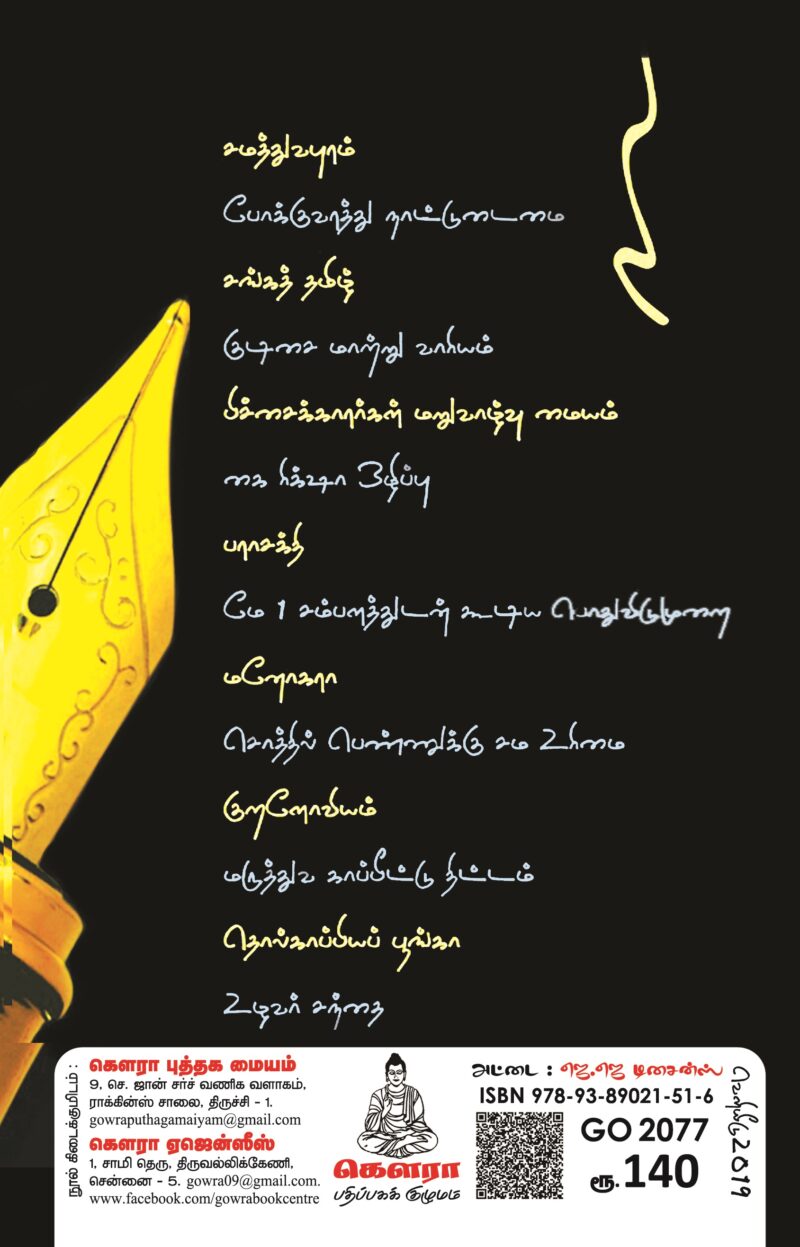 சமத்துவபுரம்
போக்குவரத்து நாட்டுடைமை
சங்கத் தமிழ்
குடிசை மாற்று வாரியம்
பிச்சைக்காரர்கள் மறுவாழ்வு மையம்
கை ரிக்‌ஷா ஒழிப்பு
பராசக்தி
மே 1 சம்பளத்துடன் கூடிய பொதுவிடுமுறை
மனோகரா
சொத்தில் பெண்ணுக்கு சம உரிமை
குறளோவியம்
மருத்துவ காப்பீட்டு திட்டம்
தொல்காப்பியப் பூங்கா
உழவர் சந்தை
நூல் கிடைக்குமிடம் :
கௌரா புத்தக மையம்
9, செ. ஜான் சர்ச் வணிக வளாகம்,
ராக்கின்ஸ் சாலை, திருச்சி - 1.
gowraputhagamaiyam@gmail.com
கௌரா ஏஜென்ஸீஸ்
1, சாமி தெரு, திருவல்லிக்கேணி,
சென்னை - 5. gowra09@gmail.com.
www.facebook.com/gowrabookcentre
கௌரா
பதிப்பகக் குழுமம்
அட்டை : ஜெ.ஜெ டிசைன்ஸ்
ISBN 978-93-89021-51-6
GO 2077
ரூ. 140
வெளியீடு 2019